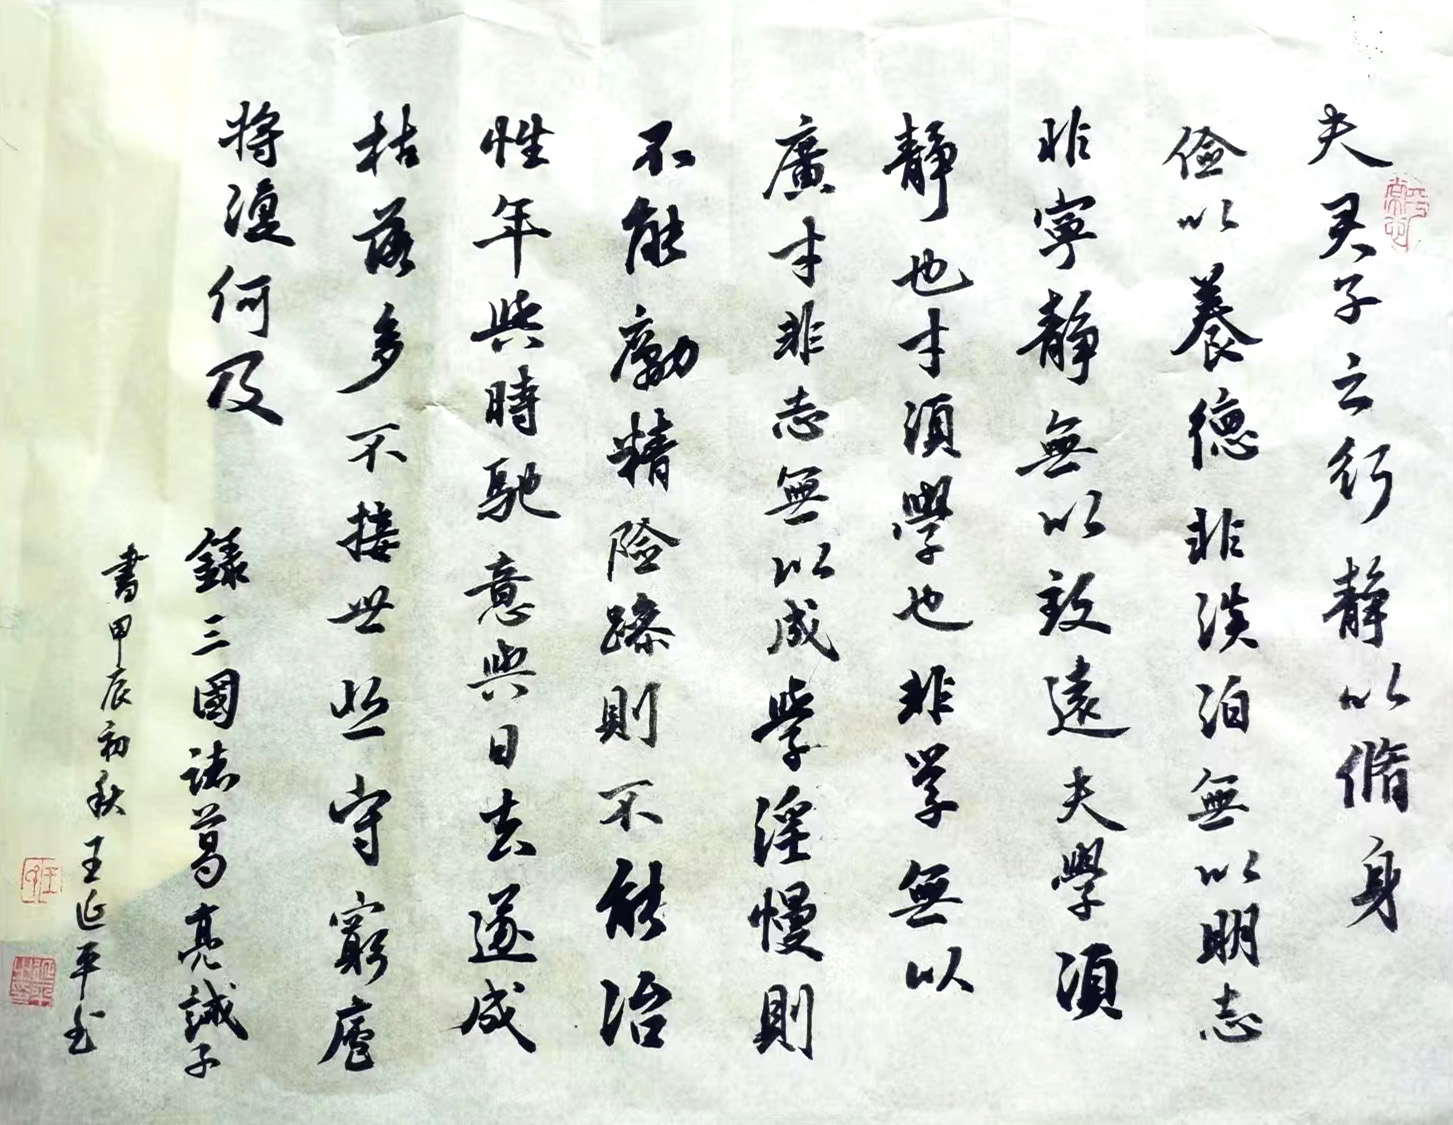 夫君子之行靜以脩身
儉以養德非淡泊無以明志
非寧靜無以致遠夫學須
靜也才須學也非学無以
廣才非志無以成學淫慢則
不能勵精險躁則不能治
性年與時馳意與日去遂成
枯落多不接世悲守窮廬
將復何及
錄三國諸葛亮誡子
書甲辰初秋王延平书